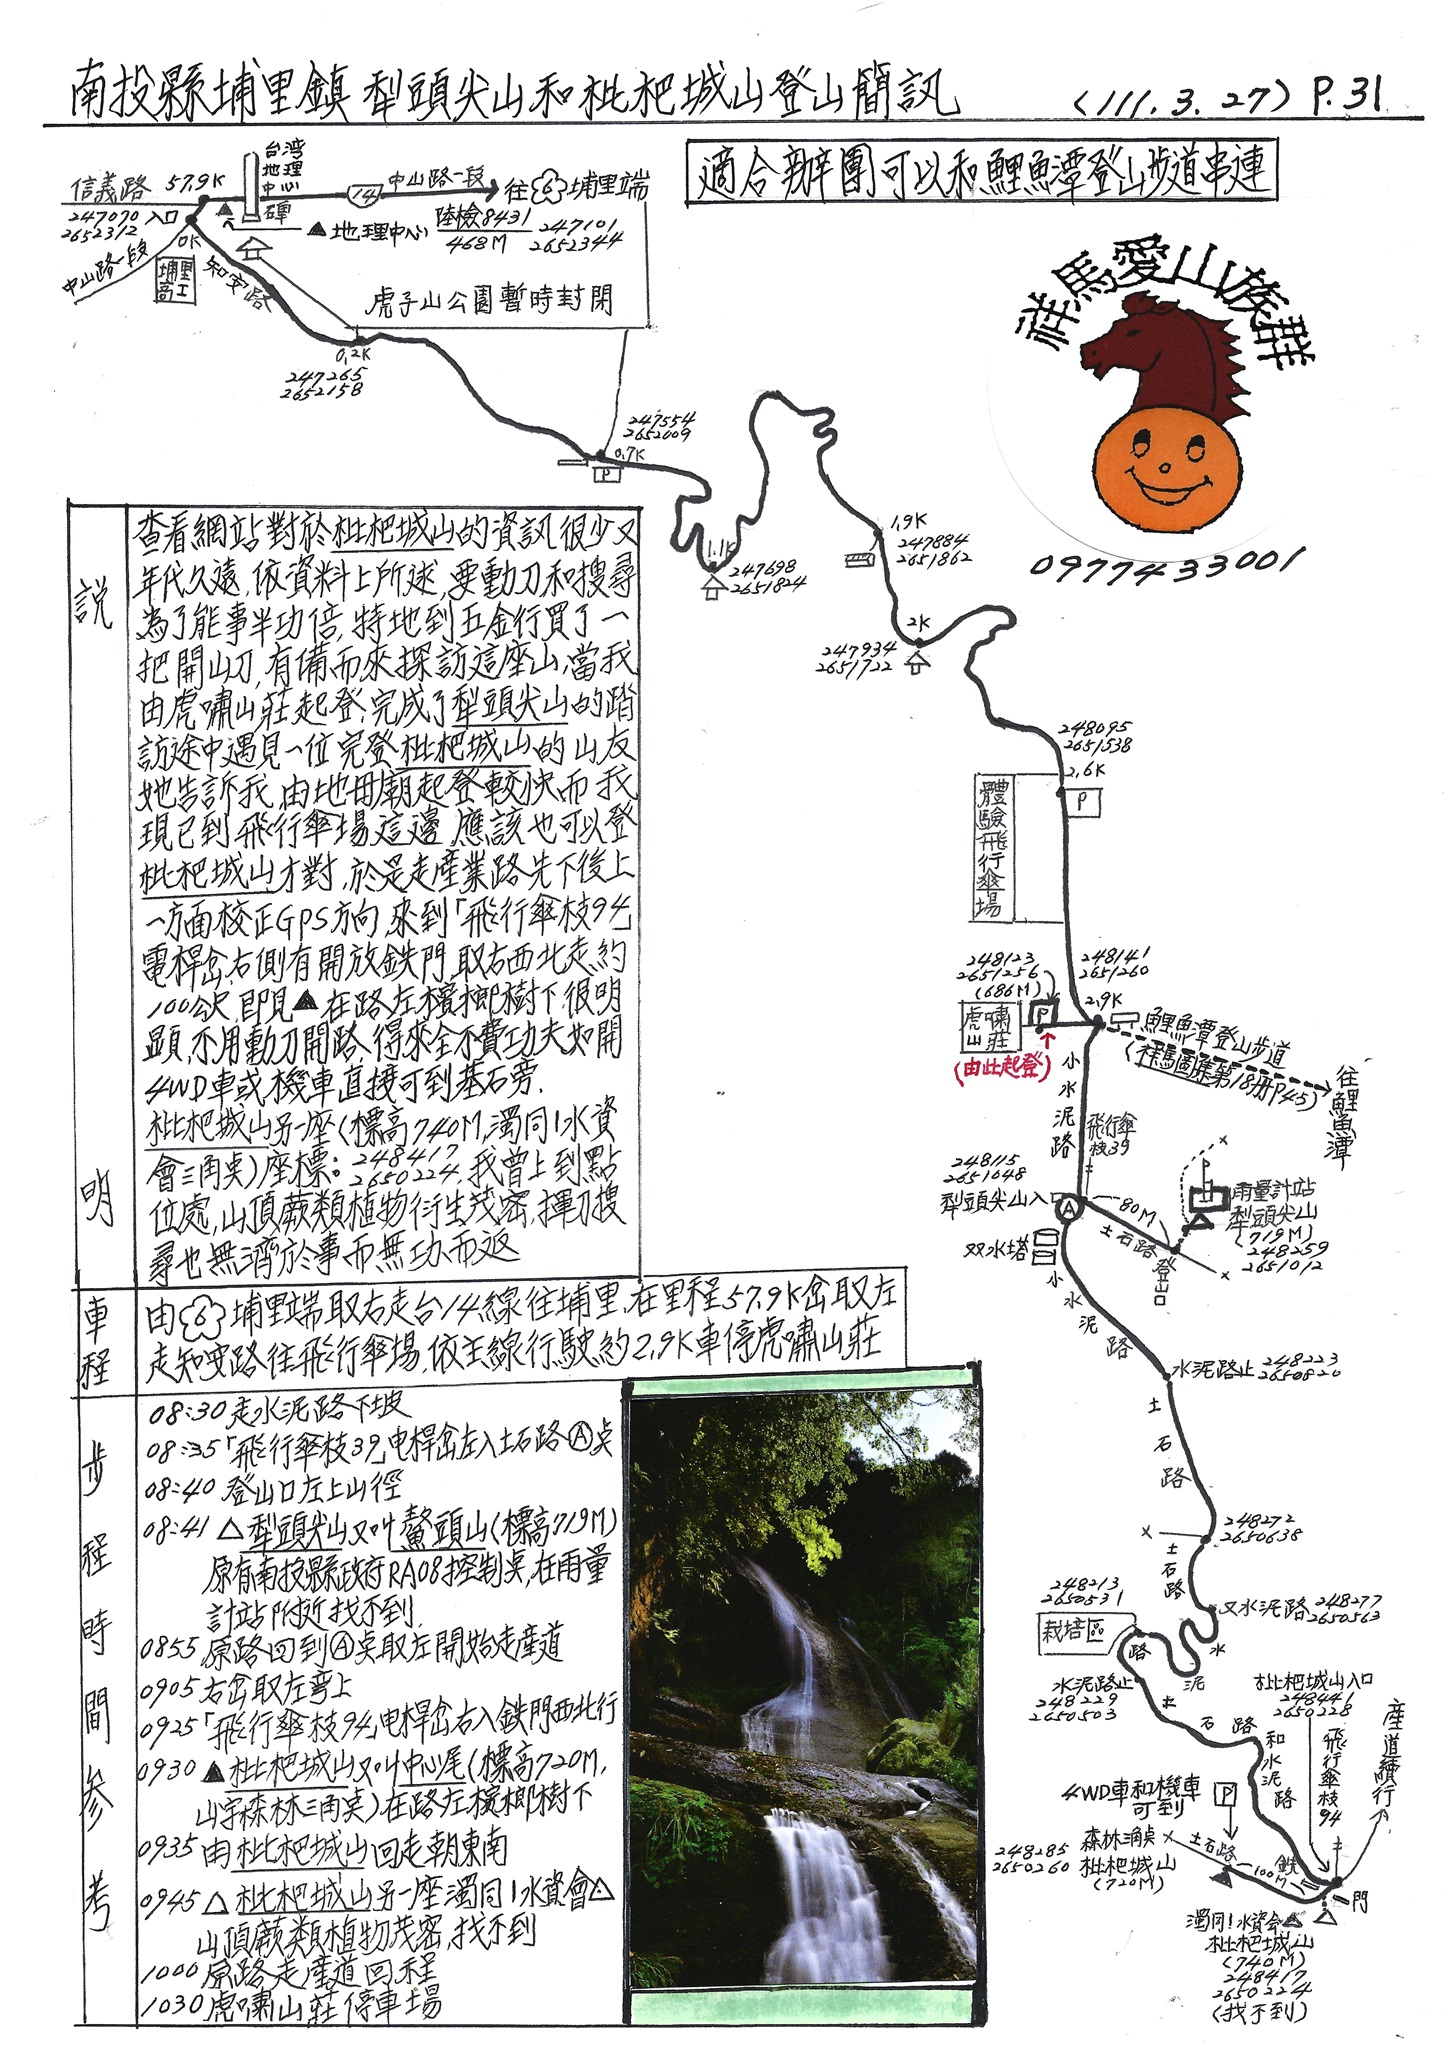 南投縣埔里鎮 犁頭尖山和枇杷城山登山簡訊 (111.3.27) P.31
適合辦團可以和鯉魚潭登山步道串連
信義路 57.9K
台湾
地理
中心
碑
14 中山路一段 往 6 埔里端
247070 入口
2652312
0K
中山路一段
埔里
高工
知安路
▲地理中心 陸檢8431 247101
468M 2652344
虎子山公園暫時封閉
0.2K
247265
2652158
247554
2652009
0.7K
P
1.1K
247698
2651824
1.9K
247884
2651862
2K
247934
2651722
祥馬愛山族群
0977433001
248095
2651538
2.6K
P
體驗飛行傘場
248123
2651256
(686M)
248141
2651260
2.9K
虎嘯
山莊
P
(由此起登)
鯉魚潭登山步道
(祥馬圖庫第18冊P45)
往鯉魚潭
小水泥路
飛行傘
枝39
248115
2651048
犁頭尖山入口
A
80M
土石路
登山口
雨量計站
犁頭尖山
(719M)
248259
2651012
双水塔
小水泥路
水泥路止 248223
2650820
土石路
248272
2650638
土石路
又水泥路 248277
2650563
248213
2650531
栽培區
水泥路
水泥路止
248229
2650503
土石路和水泥路
枇杷城山入口
248441
2650228
飛行傘枝94
產道續行
4WD車和機車
可到
P
248285 森林三角桌
2650260 枇杷城山
(720M)
土石路
100M
鉄門
濁同1水資会
枇杷城山
(740M)
248417
2650224
(找不到)
説明
查看網站對於枇杷城山的資訊很少又
年代久遠,依資料上所述,要動刀和搜尋
為了能事半功倍,特地到五金行買了一
把開山刀,有備而來探訪這座山,當我
由虎嘯山莊起登,完成了犁頭尖山的踏
訪途中遇見一位完登枇杷城山的山友
她告訴我,由地母廟起登較快而我
現已到飛行傘場這邊,應該也可以登
枇杷城山才對,於是走產業路先下後上
一方面校正GPS方向,來到「飛行傘枝94」
電桿岔右側有開放鉄門,取右西北走約
100公尺,即見▲在路左檳榔樹下,很明
顯,不用動刀開路,得來全不費功夫如開
4WD車或機車直接可到基石旁.
枇杷城山另一座(標高740M,濁同1水資
會三角桌)座標:248417 2650224,我曾上到點
位處,山頂蕨類植物衍生茂密,揮刀搜
尋也無濟於事而無功而返
車程
由6埔里端取右走台14線往埔里,在里程57.9K岔取左
走知安路往飛行傘場,依主線行駛約2.9K車停虎嘯山莊
步程時間參考
08:30 走水泥路下坡
08:35「飛行傘枝39」电桿岔左入土石路Ⓐ桌
08:40 登山口左上山徑
08:41 △犁頭尖山又叫鰲頭山(標高719M)
原有南投縣政府RA08控制桌,在雨量
計站附近找不到.
0855 原路回到Ⓐ桌取左開始走產道
0905 右岔取左彎上
0925「飛行傘枝94」电桿岔右入鉄門西北行
0930 ▲枇杷城山又叫中心尾(標高720M,
山字森林三角桌)在路左檳榔樹下
0935 由枇杷城山回走朝東南
0945 △枇杷城山另一座濁同1水資會△
山頂蕨類植物茂密,找不到
1000 原路走產道回程
1030 虎嘯山莊停車場